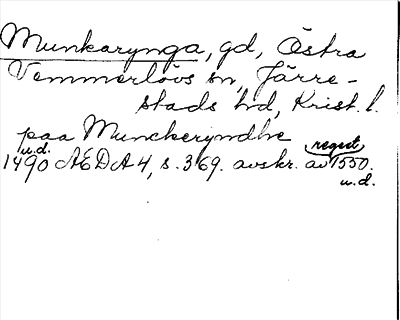 Munkarynga, gd, Östra
Vemmerlövs sn, Järre-
stads hd, Krist. l.
paa Munckeryndhe
u.d. regest
1490 AEDA 4, s. 369. avskr. av 1550.
u.d.